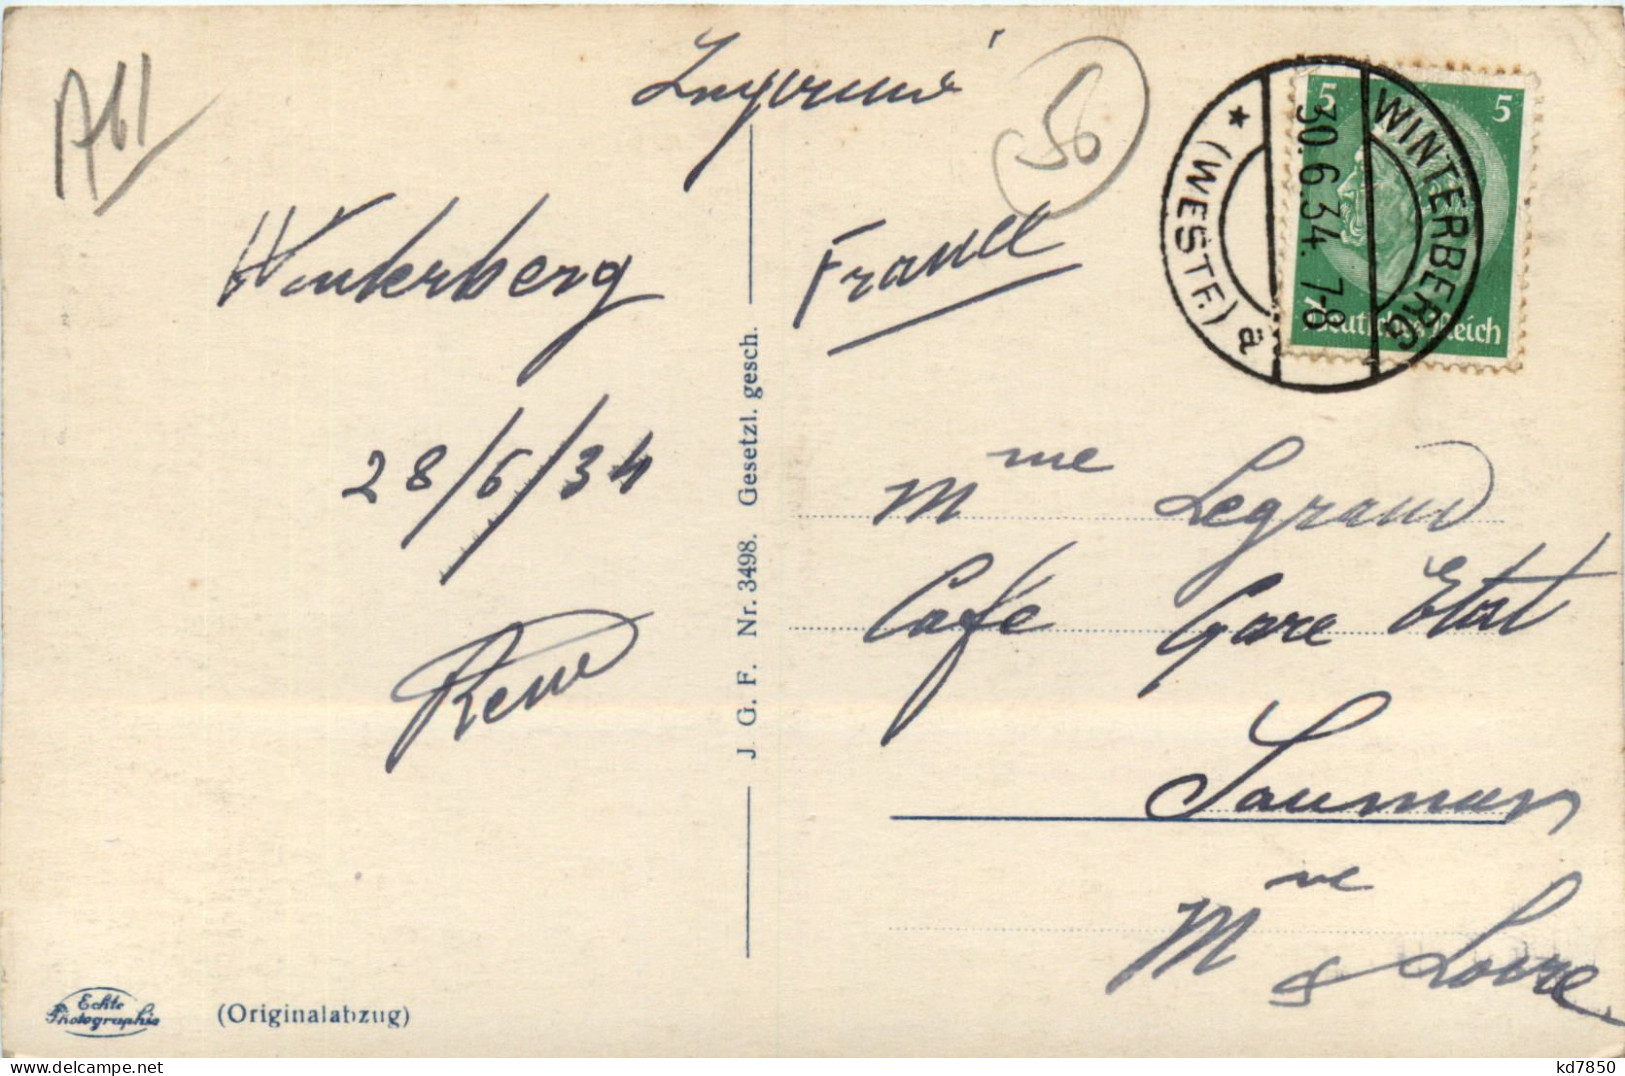 A61
Imprimé
56
Winterberg
France
28/6/34
René
WINTERBERG
* (WESTF.) a
30.6.34. 7-8
5 5
Deutsches Reich
Mme Legrand
Café Gare Etat
Saumur
Mne & Loire
J. G. F. Nr. 3498. Gesetzl. gesch.
Echte
Photographie
(Originalabzug)
kd7850